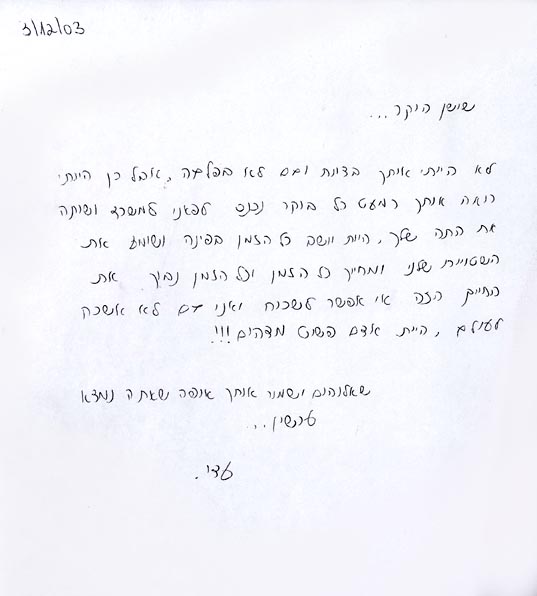 3/12/03
שישן היקר...
לא הייתי איתך בצוות וגם לא בפלגה, אבל כן הייתי
רואה אותך כמעט כל בוקר נכנס לפאני למשרד ושותה
את התה שלך, היית יושב כל הזמן בפינה ושומע את
השטויות שלנו ומחייך כל הזמן וכל הזמן את
החיוך הזה אי אפשר לשכוח ואני גם לא אשכח
לעולם, היית אדם פשוט מדהים!!!
שאלוהים ישמור אותך איפה שאתה נמצא
...
עדי.